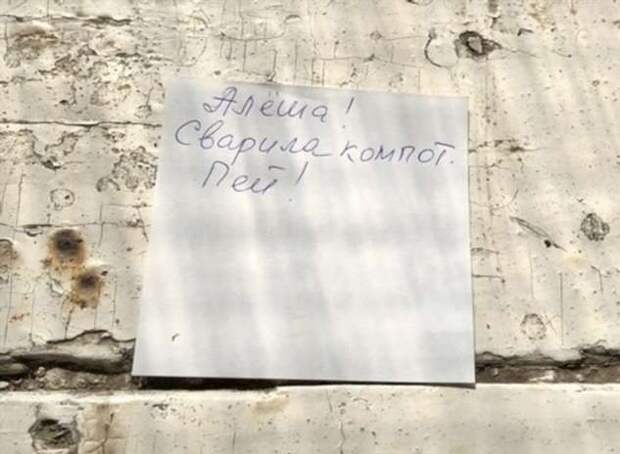 Алёша!
Сварила компот.
Пей!